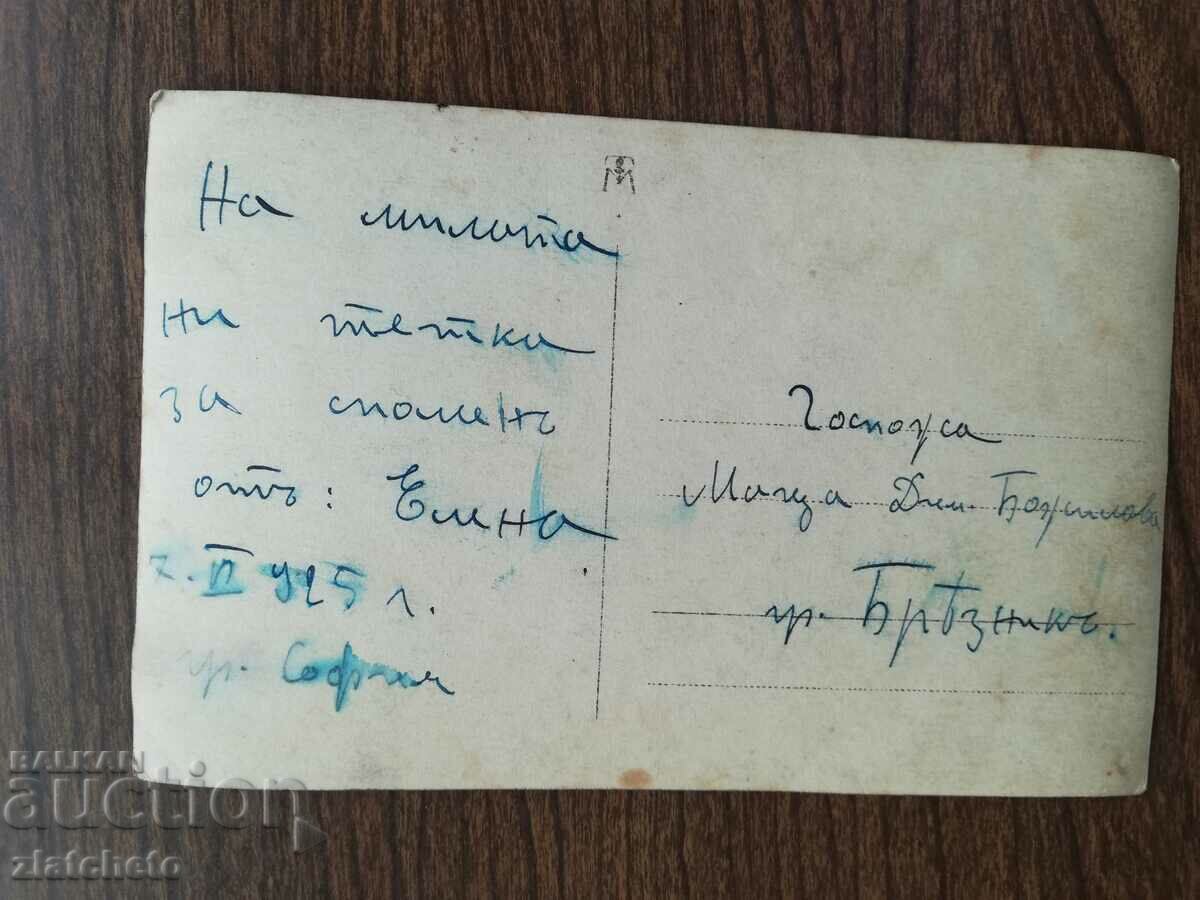 На милата
ни тетка
за споменъ
отъ: Елена.
7. II 925 г.
гр. София
Госпожа
Дим. Божилова
гр. Брѣзникъ.
BALKAN
auction
zlatcheto